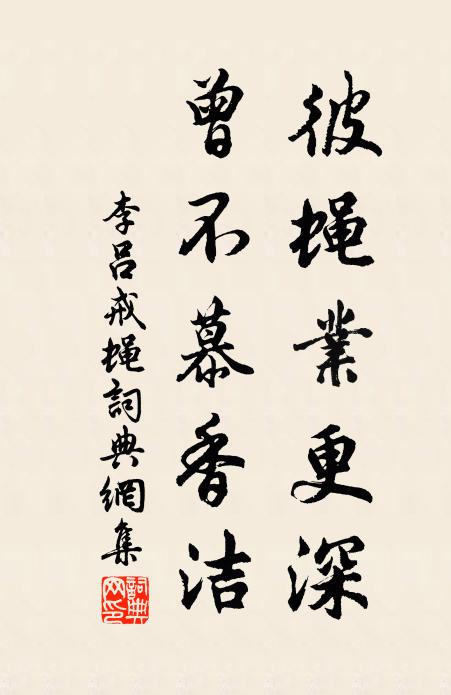 彼蝇業更深
曾不慕香洁
李吕戒蝇詞典網集
詞典网印